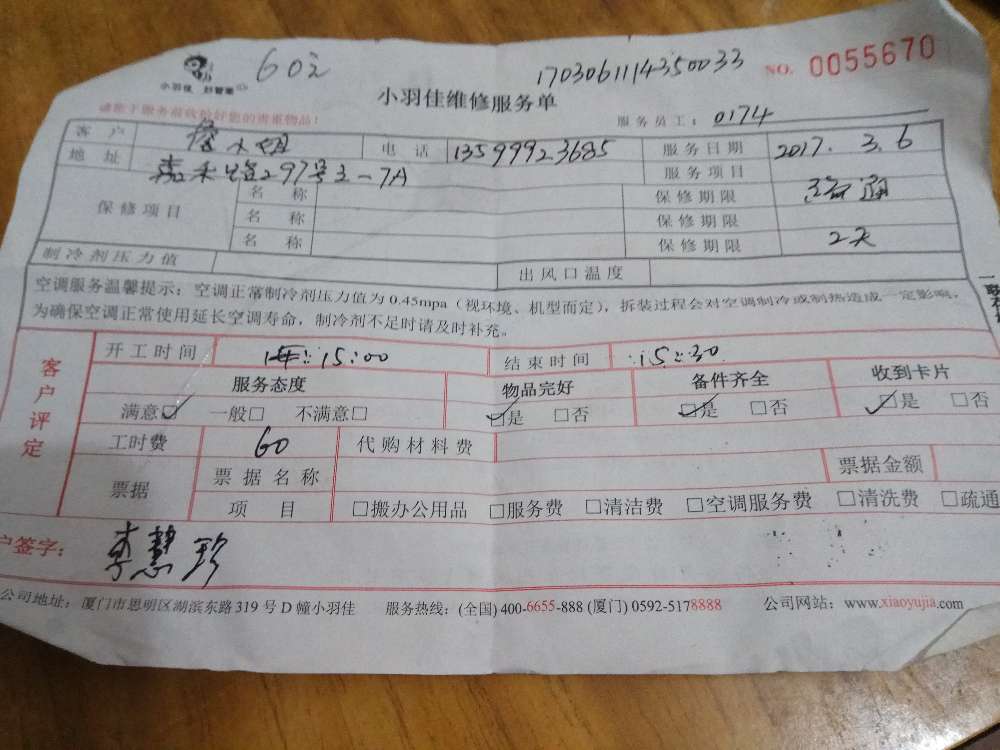 60元
1703061114350033
NO. 0055670
小羽佳 好管家
小羽佳维修服务单
服务员工: 0174
客户 小姐 电话 13599923685 服务日期 2017. 3. 6
地址 嘉禾路297号之-7A 服务项目
保修项目 名称 保修期限 疏通
名称 保修期限
名称 保修期限 2天
制冷剂压力值 出风口温度
空调服务温馨提示：空调正常制冷剂压力值为0.45mpa（视环境、机型而定），拆装过程会对空调制冷或制热造成一定影响，
为确保空调正常使用延长空调寿命，制冷剂不足时请及时补充。
客户评定
开工时间 15:00 结束时间 15:30
服务态度 物品完好 备件齐全 收到卡片
满意☑ 一般□ 不满意□ ☑是 □否 ☑是 □否 ☑是 □否
工时费 60 代购材料费
票据 票据名称 票据金额
项目 □搬办公用品 □服务费 □清洁费 □空调服务费 □清洗费 □疏通
户签字: 李慧珍
公司地址：厦门市思明区湖滨东路319号D幢小羽佳 服务热线：(全国) 400-6655-888 (厦门) 0592-5178888 公司网站：www.xiaoyujia.com